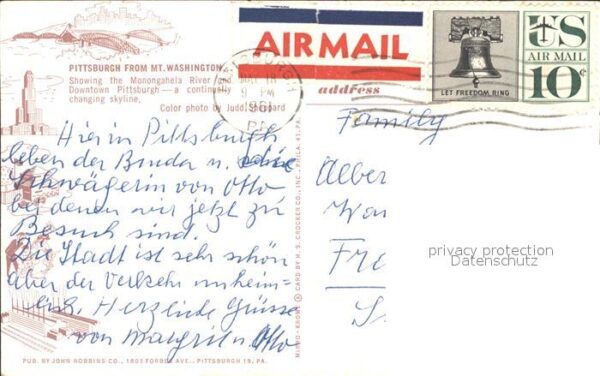 PITTSBURGH FROM MT. WASHINGTON
Showing the Monongahela River and
Downtown Pittsburgh — a continually
changing skyline.
Color photo by Judd Sheppard
AIR MAIL
address
9 PM
1961
PA
LET FREEDOM RING
US
AIR MAIL
10¢
Hier in Pittsburgh
leben der Bruder u. die
Schwägerin von Otto
bei denen wir jetzt zu
Besuch sind.
Die Stadt ist sehr schön
aber der Verkehr unheim-
lich. Herzliche Grüsse
von Margrit u. Otto
Family
Alber
Fre
S
privacy protection
Datenschutz
MIRRO-KROME ® CARD BY H. S. CROCKER CO., INC., PHILA. 41, PA.
PUB. BY JOHN ROBBINS CO., 1803 FORBES AVE., PITTSBURGH 19, PA.